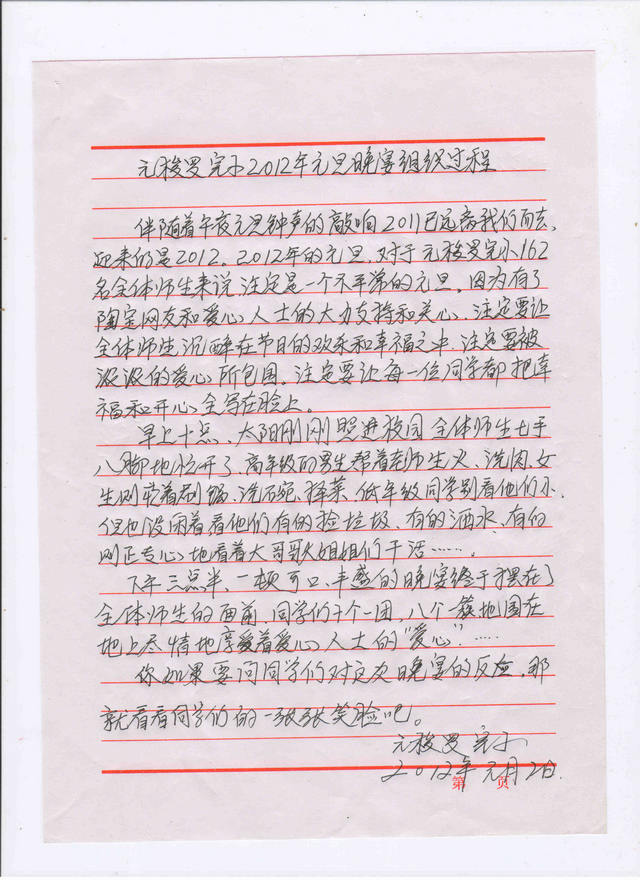 元梭罗完小2012年元旦晚宴组织过程
伴随着午夜元旦钟声的敲响2011已远离我们而去,
迎来的是2012。2012年的元旦,对于元梭罗完小162
名全体师生来说,注定是一个不平常的元旦。因为有了
陶定网友和爱心人士的大力支持和关心、注定要让
全体师生沉醉在节日的欢乐和幸福之中,注定要被
浓浓的爱心所包围。注定要让每一位同学都把幸
福和开心全写在脸上。
早上十点、太阳刚刚照进校园全体师生七手
八脚地忙开了、高年级的男生帮着老师生火、洗肉、女
生则忙着刷锅、洗碗、择菜、低年级同学别看他们小、
但也没闲着看他们有的捡垃圾、有的洒水、有的
则正专心地看着大哥哥姐姐们干活……。
下午三点半、一顿可口、丰盛的晚宴终于摆在了
全体师生的面前、同学们七个一团,八个一簇地围在
地上尽情地享受着爱心人士的"爱心"……
你如果要问同学们对这次晚宴的反应,那
就看看同学们的一张张笑脸吧。
元梭罗完小
2012年元月2日.
第 页